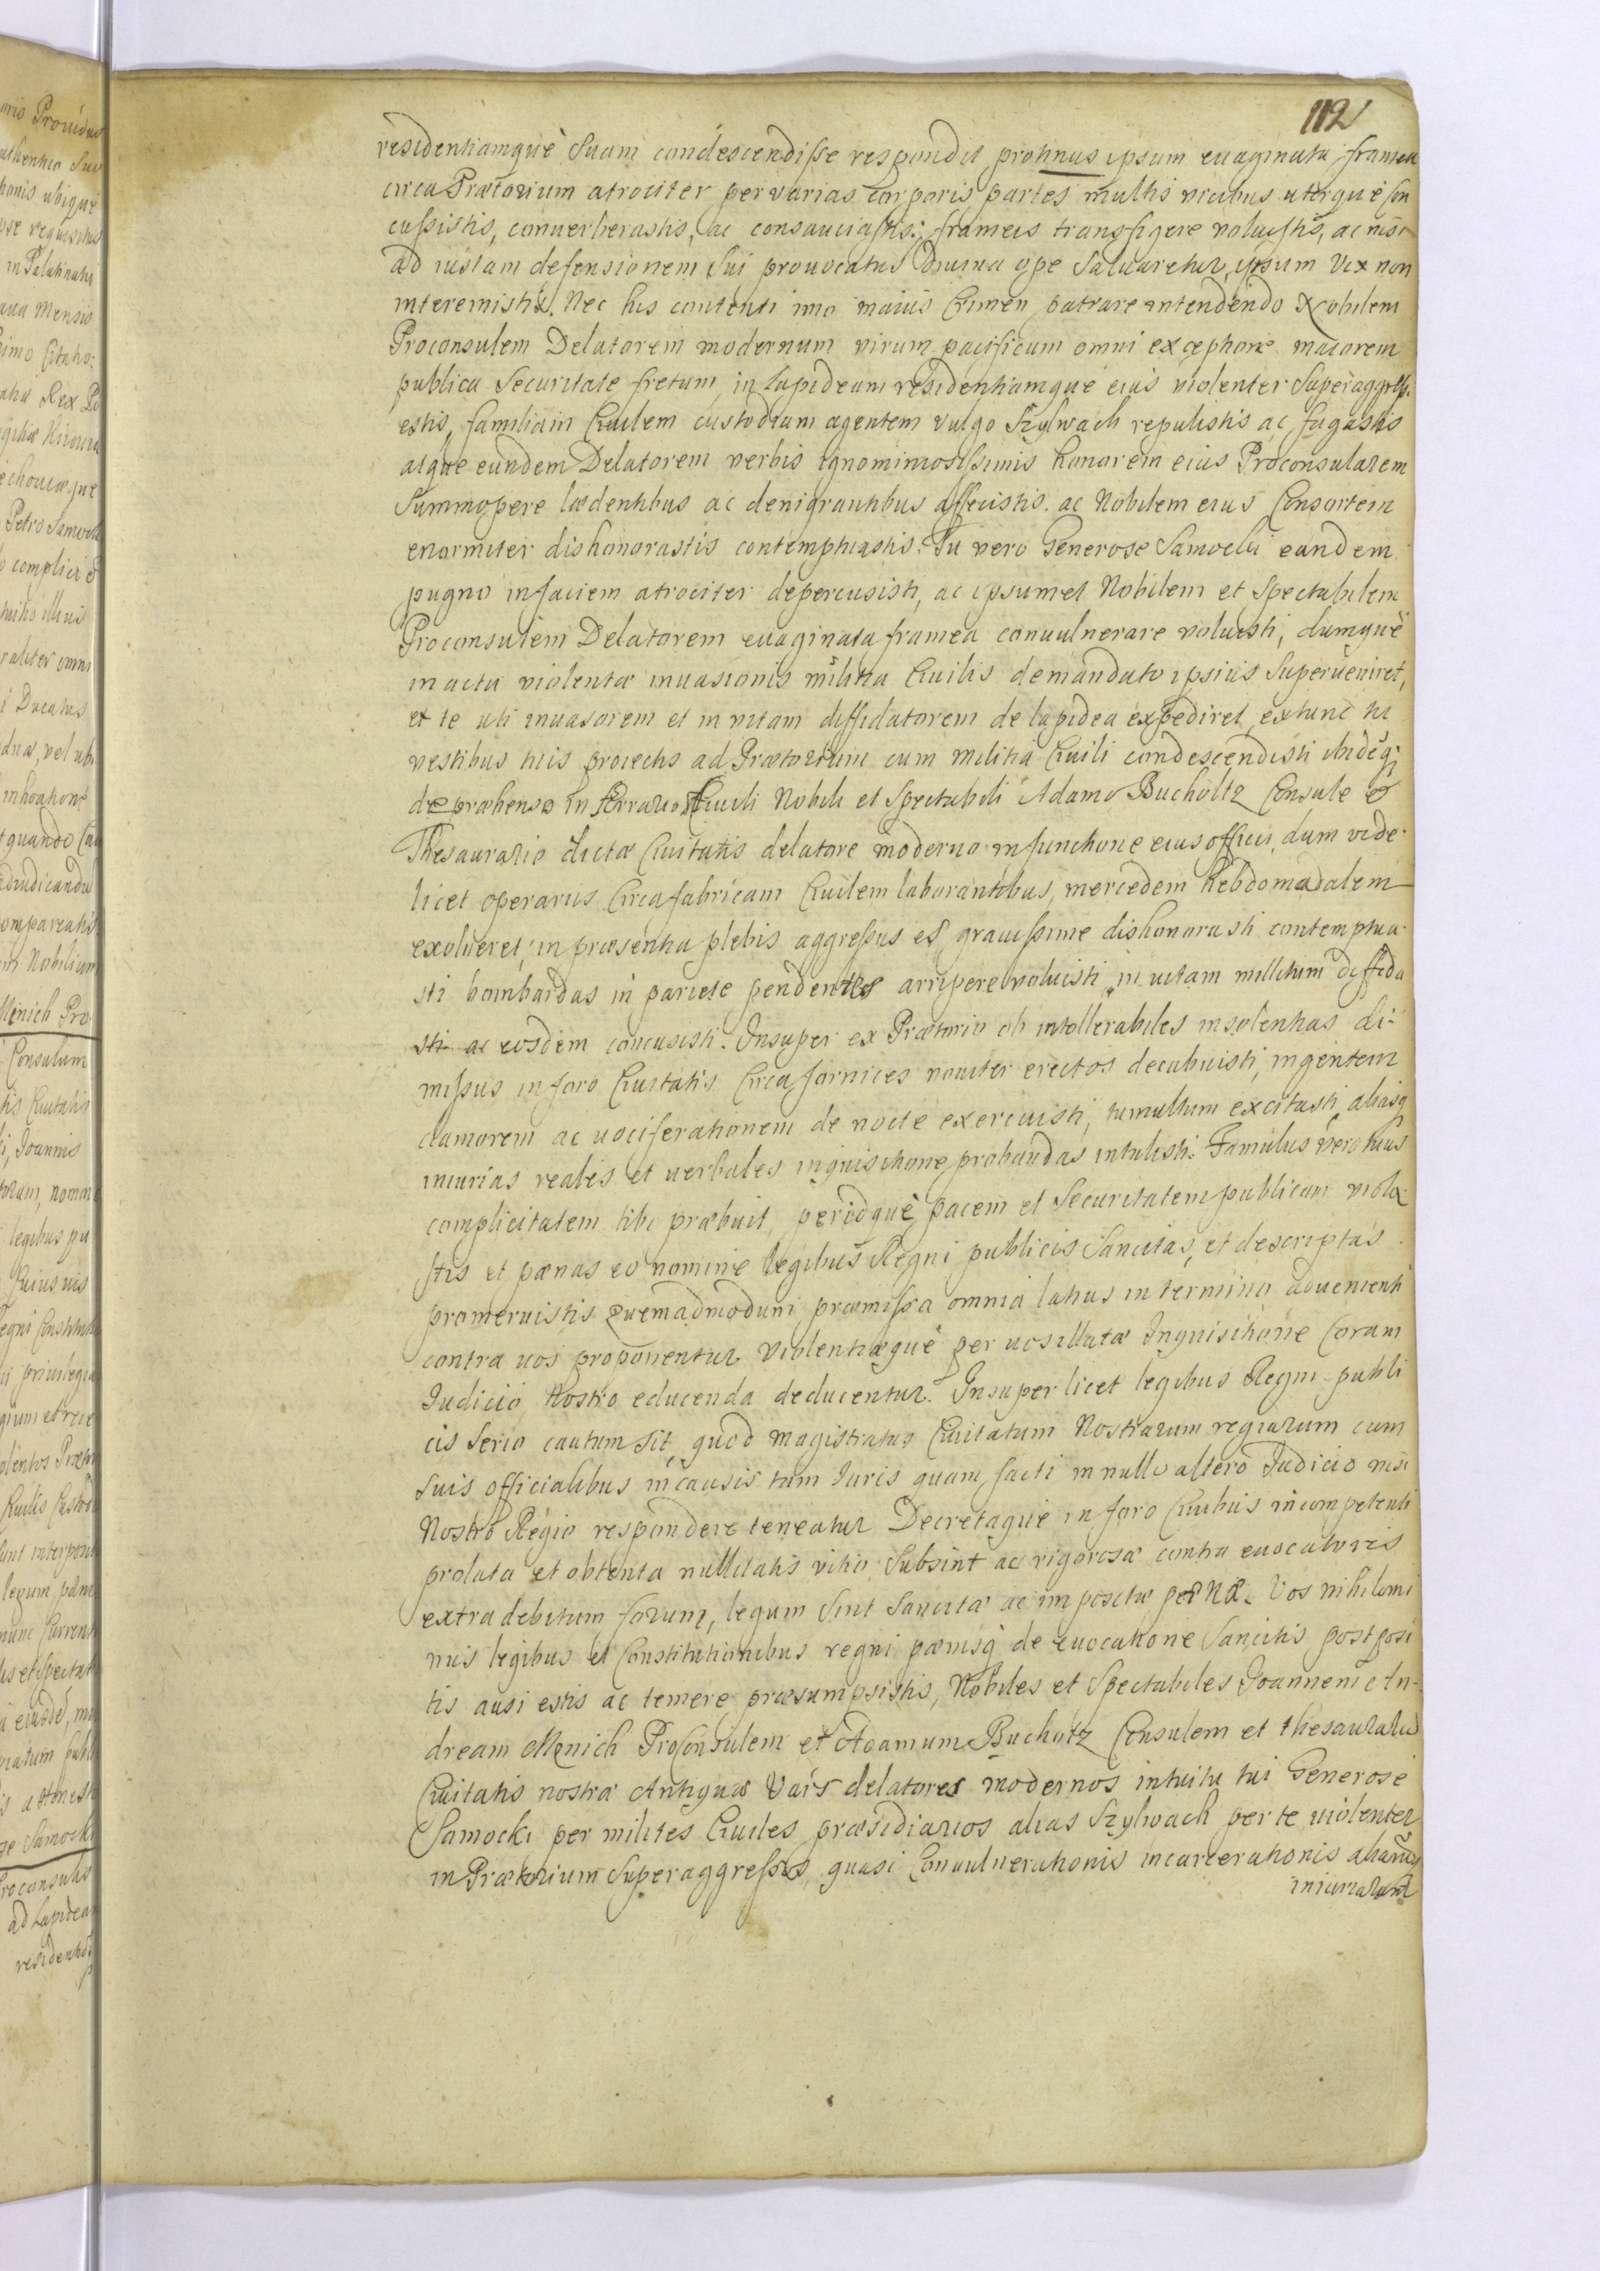 112
residentiamquè Suam condescendisse respondit protinus ipsum euaginata framea
circa Prætorium atrociter per varias corporis partes multis vicibus uterquè con
cussistis, conuerberastis, ac consauciastis, frameis transfigere voluistis, ac nisi
ad iustam defensionem sui prouocatus diuina ope saluaretur, ipsum vix non
interemistis. Nec his contenti imo maius Crimen patrare intendendo Nobilem
Proconsulem Delatorem modernum virum pacificum omni exceptione maiorem
publica Securitate fretum, in lapideam residentiamque eius violenter superaggressi
estis, familiam Ciuilem custodiam agentem vulgo Szylwach repulistis ac fugastis
atque eundem Delatorem verbis ignominiosissimis honorem eius Proconsularem
Summopere lædentibus ac denigrantibus affecistis. ac Nobilem eius Consortem
enormiter dishonorastis contemptuastis. Tu vero Generose Samocki eandem
pugno in faciem atrociter depercusisti, ac ipsummet Nobilem et Spectabilem
Proconsulem Delatorem euaginata framea conuulnerare voluisti, dumquè
in actu violentæ inuasionis militia Ciuilis de mandato ipsius superueniret,
et te uti inuasorem et in vitam diffidatorem de lapidea expediret, extunc tu
vestibus tuis proiectis ad Prætorium cum militia Ciuili condescendisti ibideq;
depræhenso in Ærrario Ciuili Nobili et Spectabili Adamo Bucholtz Consule et
Thesaurario dictæ Ciuitatis delatore moderno in functione eius officii, dum vide-
licet operariis Circa fabricam Ciuilem laborantibus, mercedem hebdomadalem
exolueret, in præsentia plebis aggressus es grauissime dishonorasti contemptua-
sti bombardas in pariete pendentes arripere voluisti, in vitam militum diffida
sti ac eosdem concusisti. Insuper ex Prætorio ob intollerabiles insolentias di-
missus in foro Ciuitatis Circa fornices nouiter erectos decubuisti, ingentem
clamorem ac vociferationem de nocte exercuisti, tumultum excitasti, aliasq
iniurias reales et verbales inquisitione probandas intulisti. Famulus vero tuus
complicitatem tibi præbuit, peridquè pacem et Securitatem publicam viola-
stis et pænas eo nomine legibus Regni publicis Sancitas, et descriptas
promeruistis quemadmodum præmissa omnia latius in termino aduenienti
contra vos proponentur violentiæquè per vos illatæ Inquisitione Coram
Iudicio Nostro educenda deducentur. Insuper licet legibus Regni publi
cis Serio cautum sit, quod magistratus Ciuitatum Nostrarum regiarum cum
suis officialibus in causis tam Iuris quam facti in nullo altero Iudicio nisi
Nostro Regio respondere teneatur Decretaquè in foro Ciuibus incompetenti
prolata et obtenta nullitatis vitio subsint ac rigorosæ contra euocatores
extra debitum forum, legum sint Sancitæ ac impositæ pœnæ. Vos nihilomi
nus legibus et Constitutionibus regni pænisq de euocatione Sancitis postposi
tis ausi estis ac temere præsumpsistis, Nobiles et Spectabiles Joannem An-
dream Menich Proconsulem et Adamum Bucholtz Consulem et thesaurariu
Ciuitatis nostræ Antiquæ Vars delatores modernos intuitu tui Generose
Samocki per milites Ciuiles præsidiarios alias Szylwach per te violenter
in Prætorium superaggressos, quasi Conuulnerationis incarcerationis aliarũq
iniuriarum